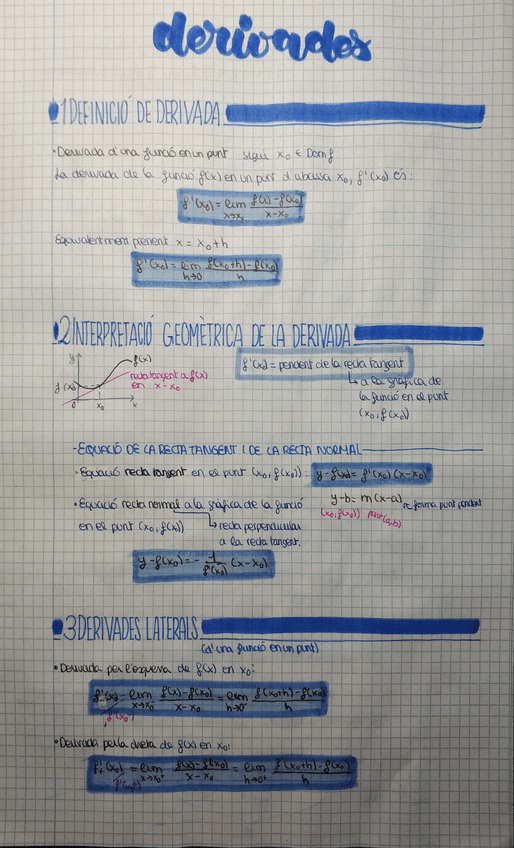 derivades
1 DEFINICIÓ DE DERIVADA
·Derivada d'una funció en un punt sigui x₀ ∈ Dom f
La derivada de la funció f(x) en un punt d'abscissa x₀, f'(x₀) és:
f'(x₀) = lim x→x₀ f(x) - f(x₀) / x - x₀
Equivalentment prenent x = x₀ + h
f'(x₀) = lim h→0 f(x₀+h) - f(x₀) / h
2 INTERPRETACIÓ GEOMÈTRICA DE LA DERIVADA
y f(x)
f'(x₀) = pendent de la recta tangent
recta tangent a f(x)
en x = x₀
f(x₀)
x₀ x
↳ a la gràfica de
la funció en el punt
(x₀, f(x₀))
-EQUACIÓ DE LA RECTA TANGENT I DE LA RECTA NORMAL
·Equació recta tangent en el punt (x₀, f(x₀)): y - f(x₀) = f'(x₀) (x - x₀)
·Equació recta normal a la gràfica de la funció
y - b = m(x - a)
forma punt pendent
en el punt (x₀, f(x₀))
(x₀, f(x₀)) punt (a, b)
↳ recta perpendicular
a la recta tangent.
y - f(x₀) = - 1 / f'(x₀) (x - x₀)
3 DERIVADES LATERALS
(d'una funció en un punt)
·Derivada per l'esquerra de f(x) en x₀:
lim x→x₀⁻ f(x) - f(x₀) / x - x₀ = lim h→0⁻ f(x₀+h) - f(x₀) / h
f'(x₀⁻)
·Derivada per la dreta de f(x) en x₀:
f'₊(x₀) = lim x→x₀⁺ f(x) - f(x₀) / x - x₀ = lim h→0⁺ f(x₀+h) - f(x₀) / h
f'(x₀⁺)